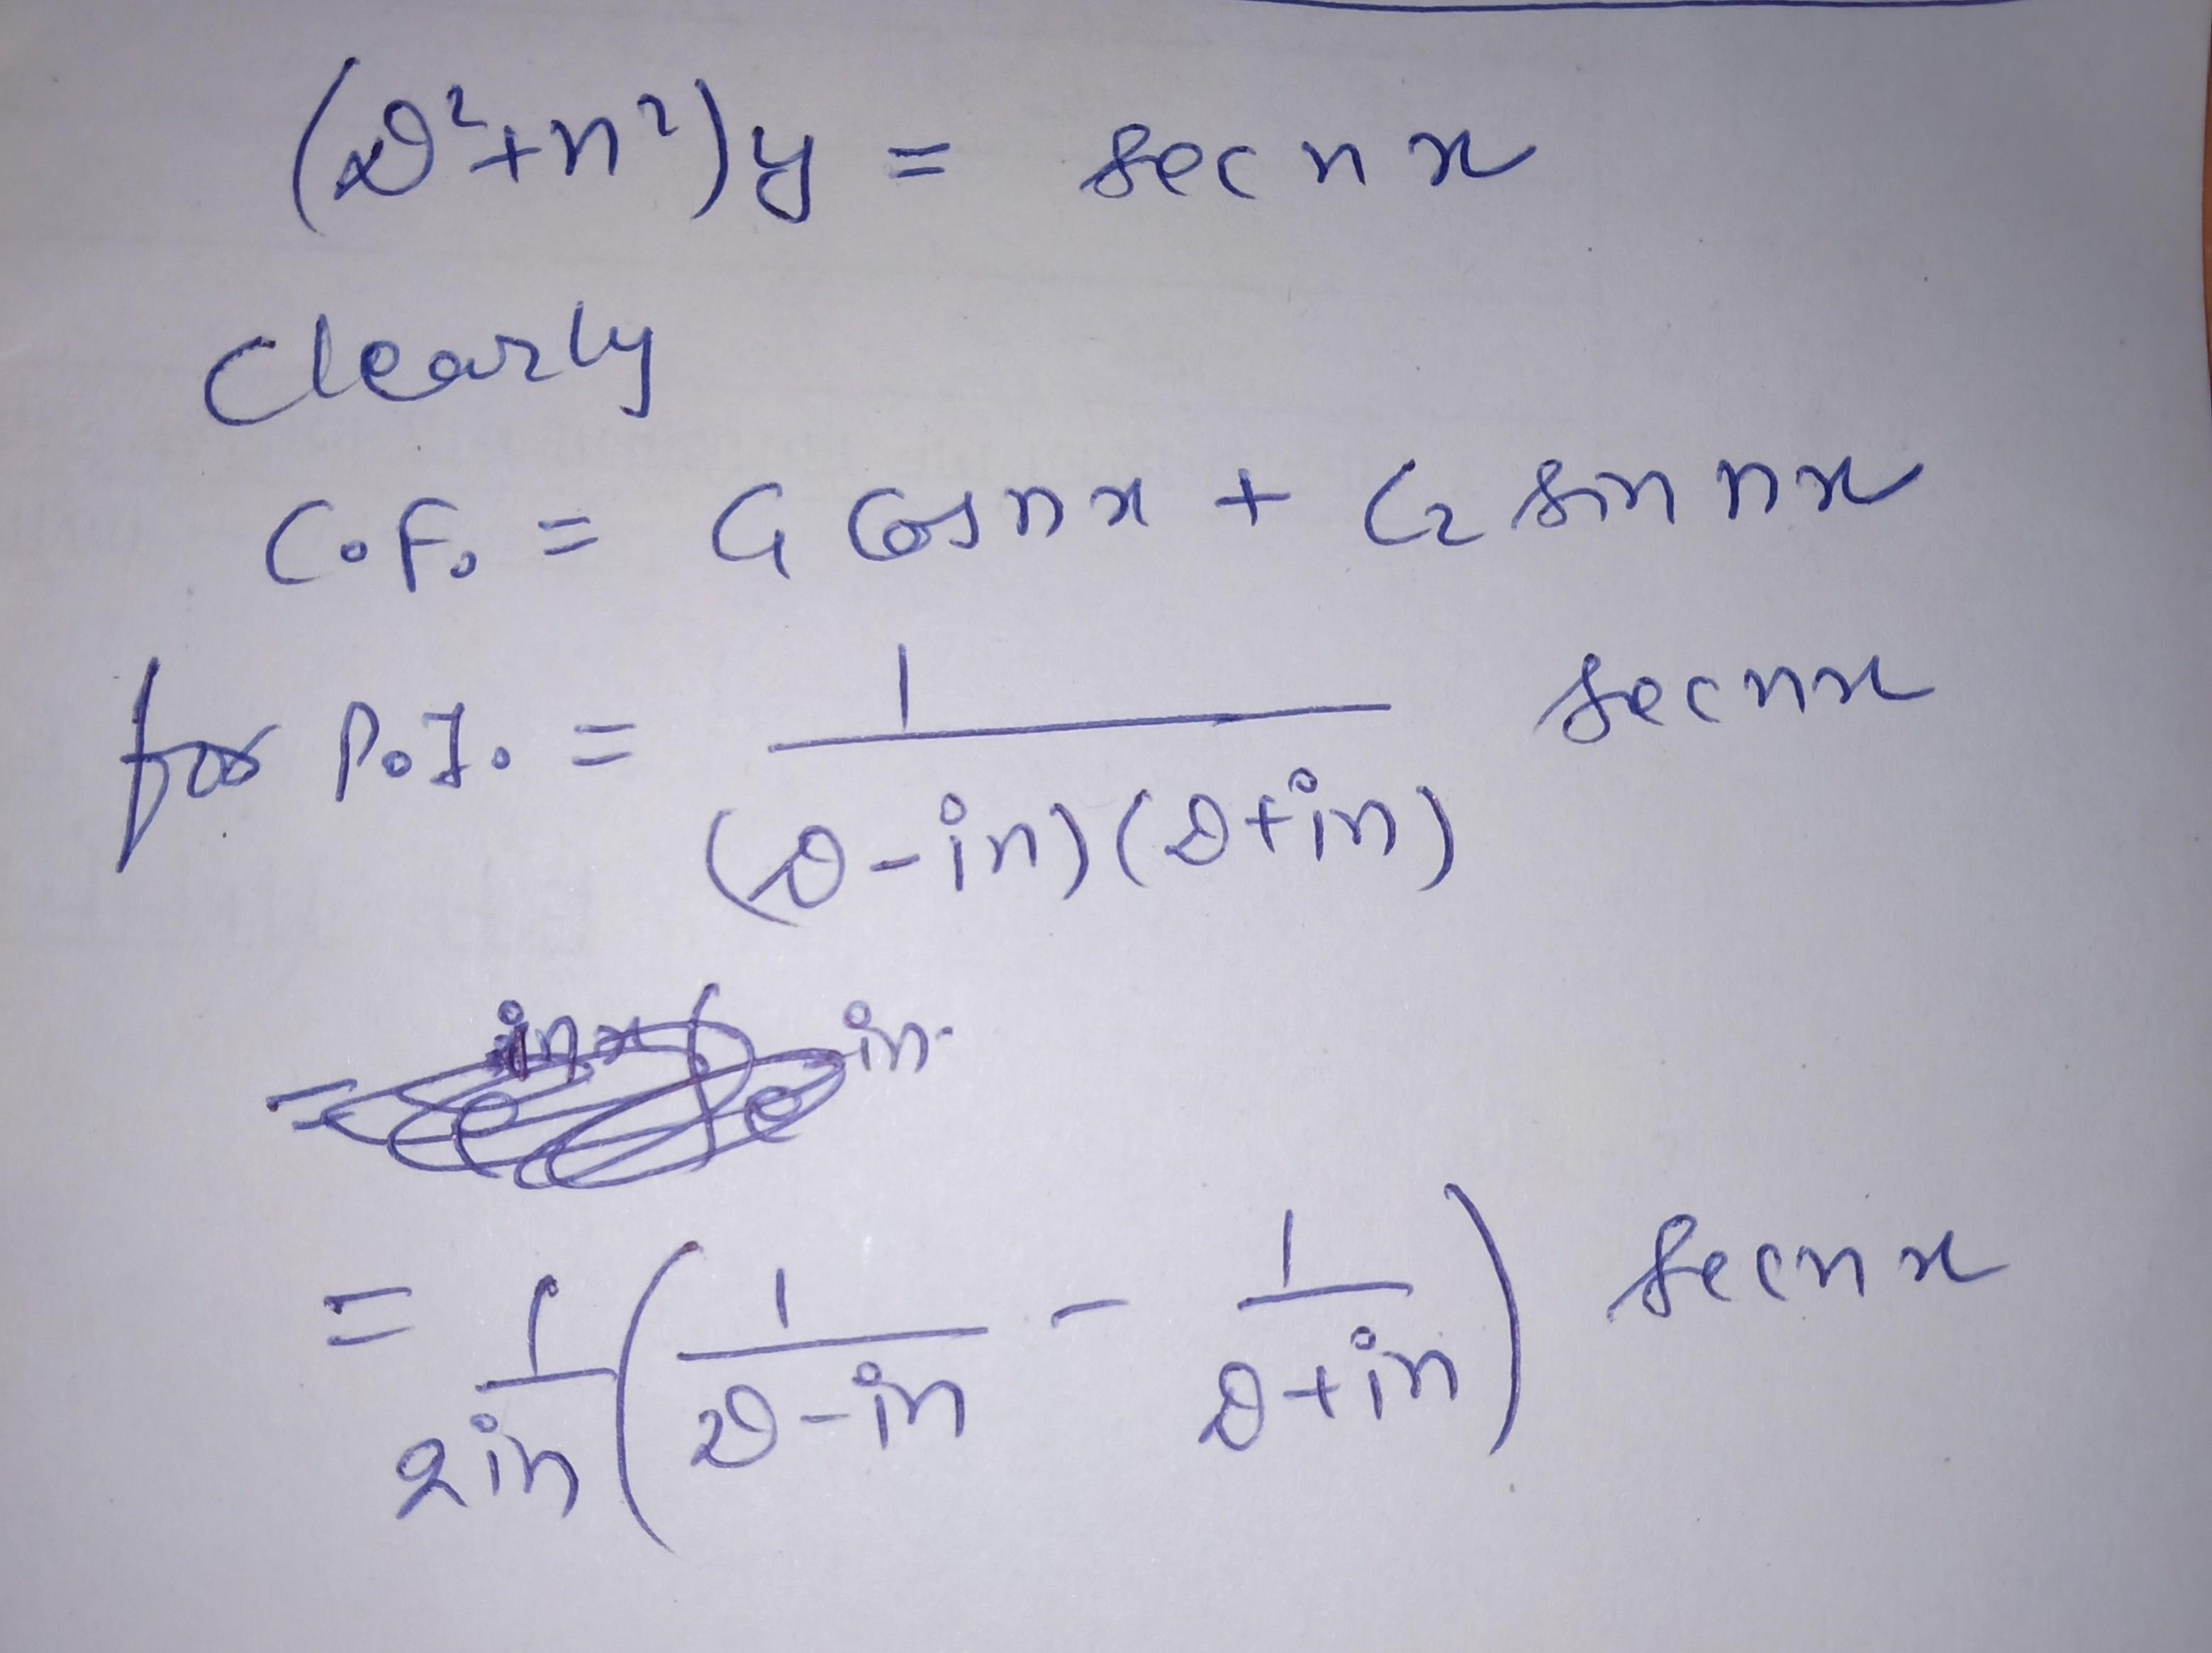 (D²+n²)y = sec nx
Clearly
C.F. = C₁ cos nx + C₂ sin nx
for P.I. = 1/((D-in)(D+in)) sec nx
= 1/2in (1/(D-in) - 1/(D+in)) sec nx